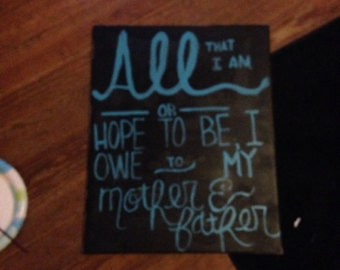 All THAT
I AM
OR
HOPE TO BE, I
OWE TO MY
mother &
father